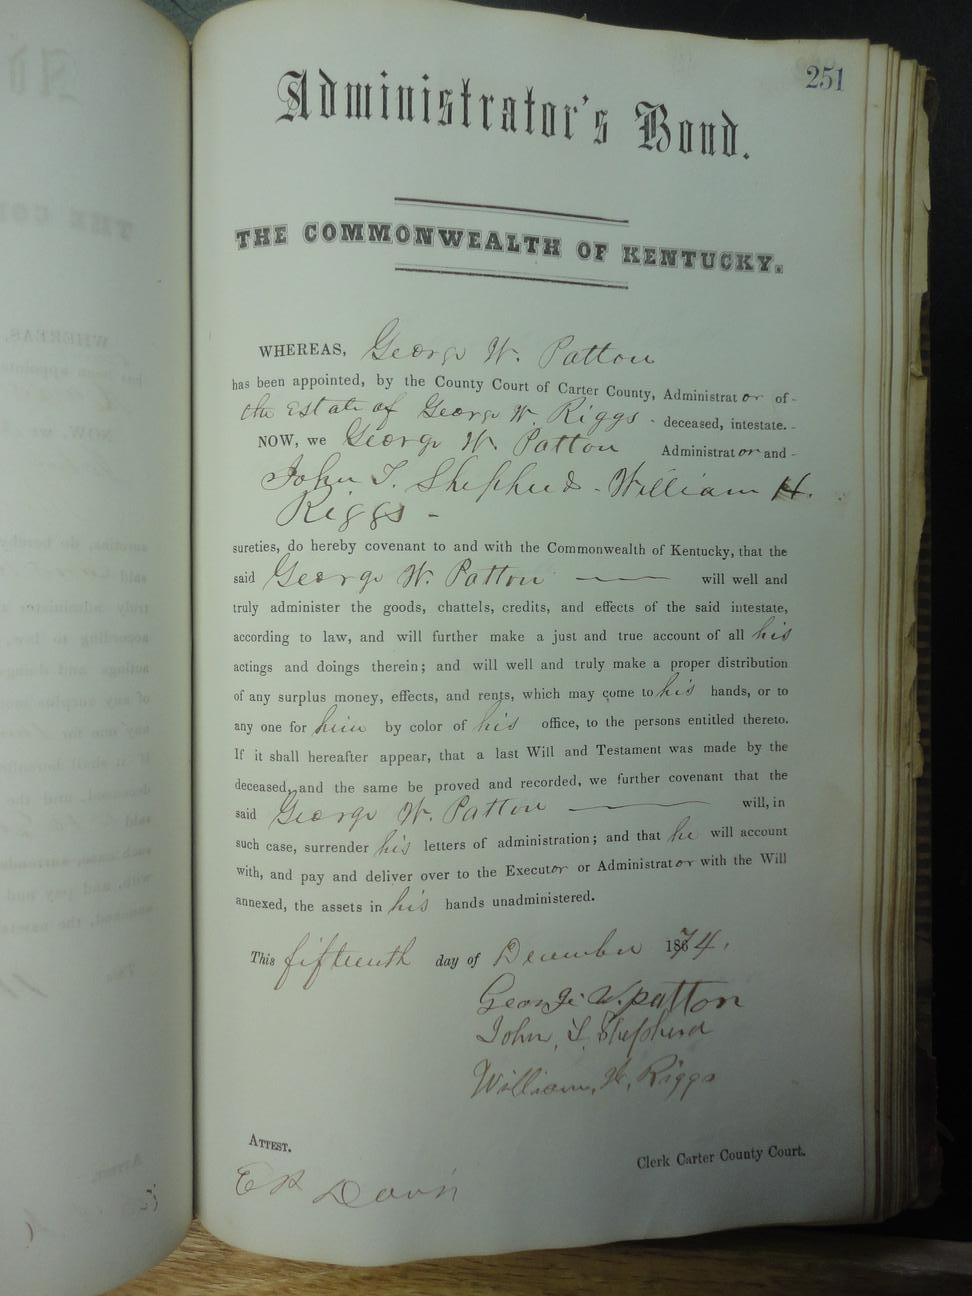 251
Administrator's Bond.
THE COMMONWEALTH OF KENTUCKY.
WHEREAS, George W. Patton
has been appointed, by the County Court of Carter County, Administrator of -
the Estate of George W. Riggs - deceased, intestate. -
NOW, we George W. Patton Administrator and -
John T. Shepherd - William H.
Riggs -
sureties, do hereby covenant to and with the Commonwealth of Kentucky, that the
said George W. Patton — will well and
truly administer the goods, chattels, credits, and effects of the said intestate,
according to law, and will further make a just and true account of all his
actings and doings therein; and will well and truly make a proper distribution
of any surplus money, effects, and rents, which may come to his hands, or to
any one for him by color of his office, to the persons entitled thereto.
If it shall hereafter appear, that a last Will and Testament was made by the
deceased, and the same be proved and recorded, we further covenant that the
said George W. Patton — will, in
such case, surrender his letters of administration; and that he will account
with, and pay and deliver over to the Executor or Administrator with the Will
annexed, the assets in his hands unadministered.
This fifteenth day of December 1874.
George W. Patton
John, T. Shepherd
William, H, Riggs
ATTEST.
Clerk Carter County Court.